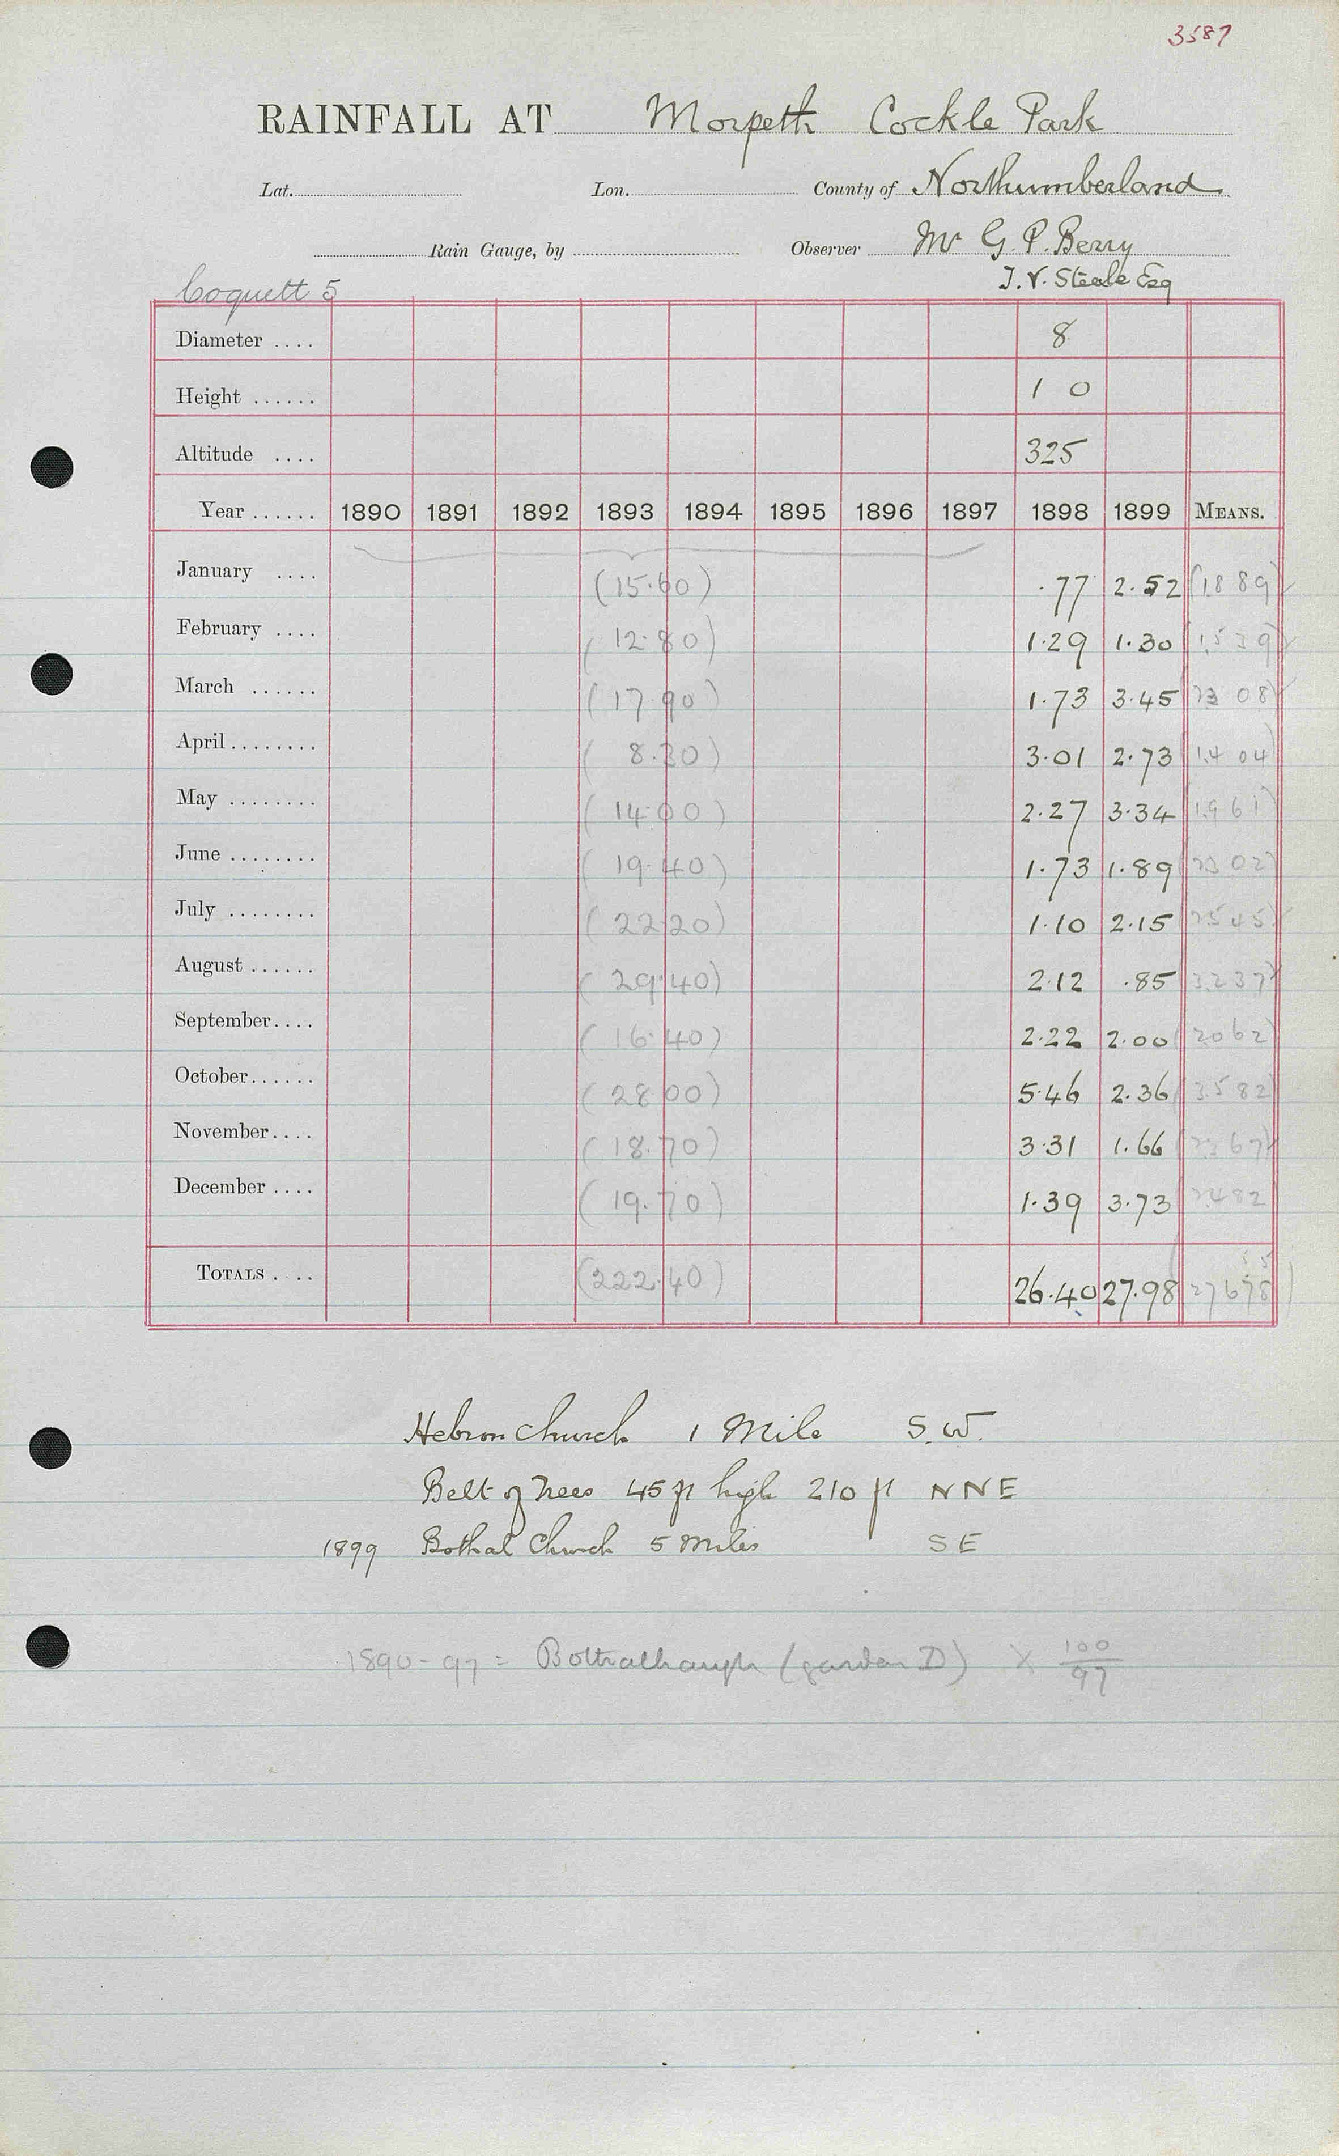 3587
RAINFALL AT Morpeth Cockle Park
Lat. Lon. County of Northumberland
Rain Gauge, by Observer Mr G. P. Berry
J. V. Steele Esq
Coquett 5
Diameter .... 8
Height ...... 1 0
Altitude .... 325
Year ...... 1890 1891 1892 1893 1894 1895 1896 1897 1898 1899 MEANS.
January .... (15.60) .77 2.52 (1889)
February .... (12.80) 1.29 1.30 (1539)
March ...... (17.90) 1.73 3.45 2308
April ........ (8.30) 3.01 2.73 (1404)
May ........ (14.00) 2.27 3.34 (1961)
June ........ (19.40) 1.73 1.89 (2302)
July ........ (22.20) 1.10 2.15 (2545)
August ...... (29.40) 2.12 .85 (3237)
September.... (16.40) 2.22 2.00 (2062)
October...... (28.00) 5.46 2.36 (3582)
November.... (18.70) 3.31 1.66 (2367)
December .... (19.70) 1.39 3.73 (2482)
TOTALS .... (222.40) 26.40 27.98 27678
Hebron Church 1 Mile S.W.
Belt of Trees 45 ft high 210 ft NNE
1899 Bothal Church 5 Miles SE
1890-97 = Bothalhaugh (garden D) × 100/97